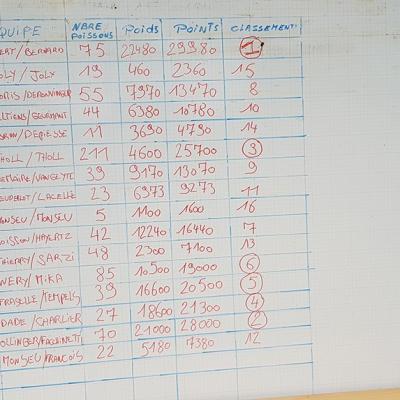 QUIPE NBRE POISSONS POIDS POINTS CLASSEMENT
ERT/BERNARD 75 22480 29980 1
OLY/JOLY 19 460 2360 15
55 7970 13470 8
44 6380 10780 10
11 3690 4790 14
HOLL/THOLL 211 4600 25700 3
39 9170 13070 9
LACELLE 23 6973 9273 11
ONSEU/MONSEU 5 1100 1600 16
OISSON/HAYERTZ 42 12240 16440 7
THIERRY/SARZI 48 2300 7100 13
WERY/MIKA 85 10500 19000 6
FRASELLE/KEMPELS 39 16600 20500 5
DADE/CHARLIER 27 18600 21300 4
70 21000 28000 2
MONSEU/FRANCOIS 22 5180 7380 12